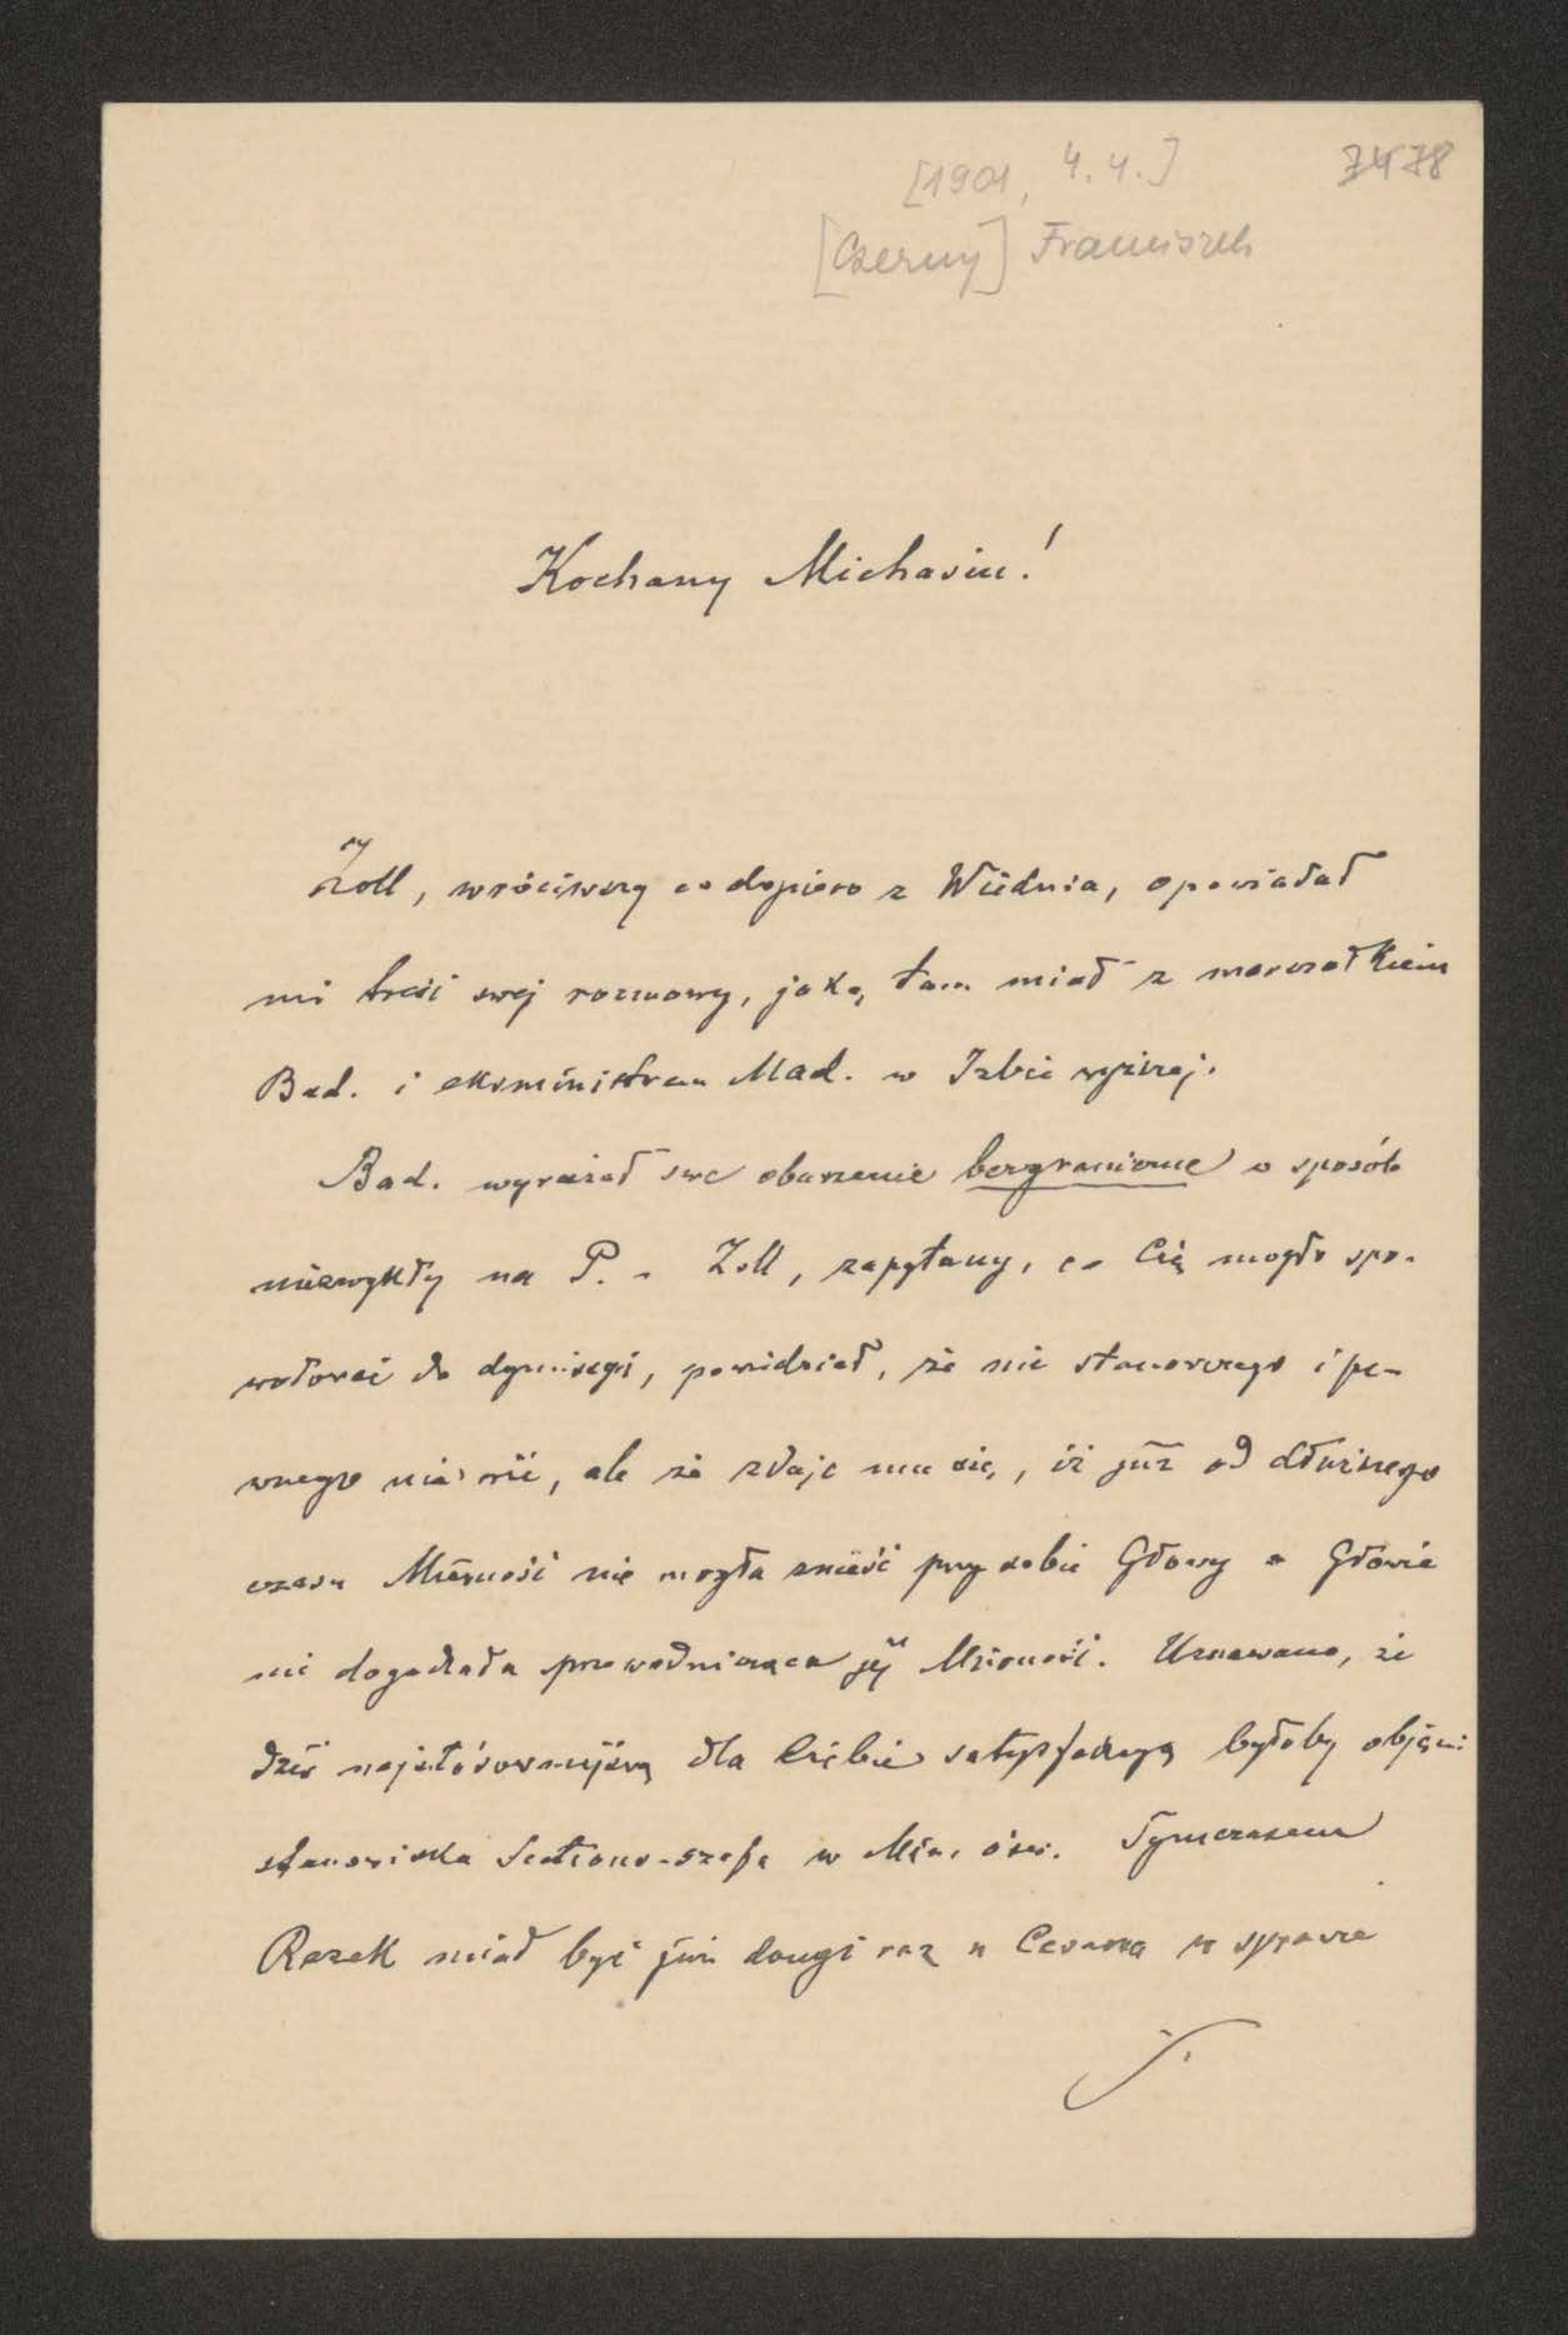 [1901, 4. 4.] 7478
[Czerny] Franciszek
Kochany Michasiu!
Zoll, wróciwszy co dopiero z Wiednia, opowiadał
mi treść swej rozmowy, jaką tam miał z marszałkiem
Bad. i eksministrem Mad. w Izbie wyższej.
Bad. wyrażał swe oburzenie bezgraniczne w sposób
niezwykły na P. - Zoll, zapytany, co Cię mogło spo-
wodować do dymisyi, powiedział, że nic stanowczego i pe-
wnego nie wie, ale że zdaje mu się, iż już od dłuższego
czasu Mierność nie mogła znieść przy sobie Głowy a Głowie
nie dogadzała przewodnicząca jej Mierność. Uznawano, że
dziś najstósowniejszą dla Ciebie satysfakcyą byłoby objęcie
stanowiska Sections-szefa w Min. ośw. Tymczasem
Rezek miał być już drugi raz u Cesarza w sprawie